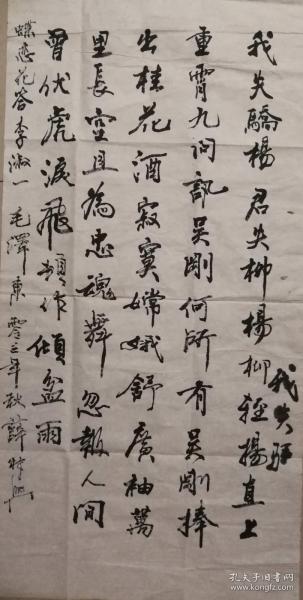 我失驕楊君失柳楊柳輕揚直上
重霄九问訊吴剛何所有吴剛捧
出桂花酒寂寞嫦娥舒廣袖萬
里長空且為忠魂舞忽報人间
曾伏虎淚飛頓作傾盆雨
蝶恋花答李淑一毛澤東零三年秋薛
我失驕
孔夫子旧书网